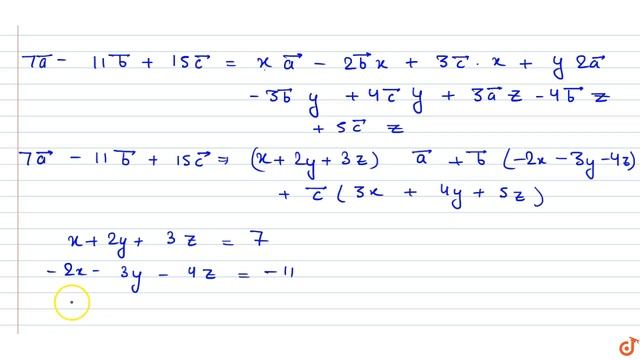 7a⃗ - 11b⃗ + 15c⃗ = x a⃗ - 2b⃗x + 3c⃗·x + y 2a⃗
- 3b⃗ y + 4c⃗ y + 3a⃗ z - 4b⃗ z
+ 5c⃗ z
7a⃗ - 11b⃗ + 15c⃗ ⇒ (x + 2y + 3z) a⃗ + b⃗ (-2x - 3y - 4z)
+ c⃗ (3x + 4y + 5z)
x + 2y + 3z = 7
- 2x - 3y - 4z = -11